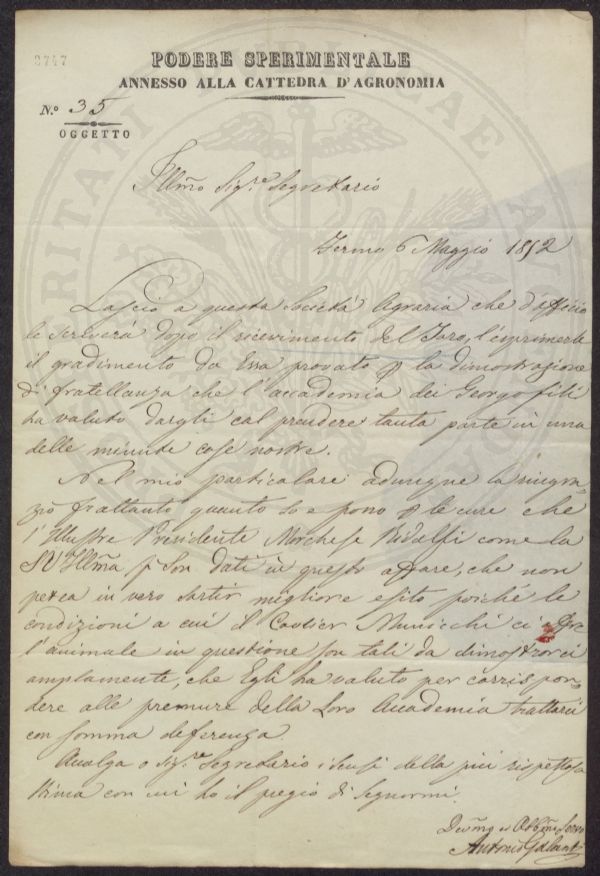 8747
PODERE SPERIMENTALE
ANNESSO ALLA CATTEDRA D'AGRONOMIA
N.º 35
OGGETTO
Illmo Sig.re Segretario
Fermo 6 Maggio 1852
Lascio a questa Società Agraria che d'officio
le scriverà dopo il ricevimento del Toro, l'esprimerle
il gradimento da Essa provato p la dimostrazione
di fratellanza che l'accademia dei Georgofili
ha voluto dargli col prendere tanta parte in una
delle minute cose nostre.
Nel mio particolare adunque la ringra-
zio frattanto quanto so e posso p le cure che
l'Illustre Presidente Marchese Ridolfi come la
SV Illma si son dati in questo affare, che non
potea in vero sortir migliore esito poichè le
condizioni a cui il Cavlier Nunicchi ci
l'animale in questione son tali da dimostrarci
amplamente, che Egli ha voluto per corrispon-
dere alle premure della Loro Accademia trattarci
con somma deferenza.
Accolga o Sig.re Segretario i sensi della più rispettosa
stima con cui ho il pregio di segnarmi.
Devmo ed Obbmo Servo
Antonio Galanti